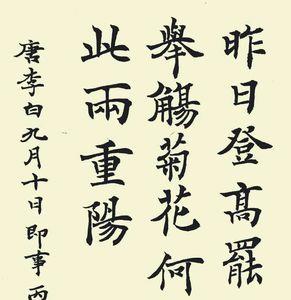 昨日登高罷
舉觴菊花何
此兩重陽
唐李白九月十日即事丙